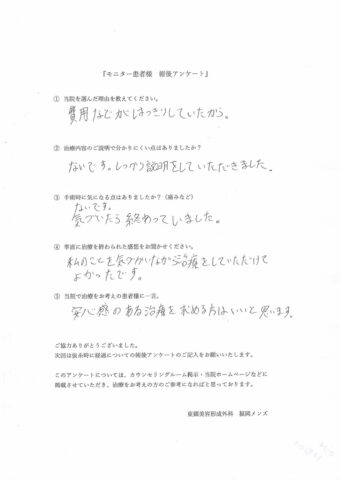 『モニター患者様　術後アンケート』
① 当院を選んだ理由を教えてください。
費用などがはっきりしていたから。
② 治療内容のご説明で分かりにくい点はありましたか？
ないです。しっかり説明をしていただきました。
③ 手術時に気になる点はありましたか？（痛みなど）
ないです。
気づいたら終わっていました。
④ 率直に治療を終わられた感想をお聞かせください。
私のことを気づかいながら治療をしていただけて
よかったです。
⑤ 当院で治療をお考えの患者様に一言。
安心感のある治療を求める方はいいと思います。
ご協力ありがとうございました。
次回は抜糸時に経過についての術後アンケートのご記入をお願いいたします。
このアンケートについては、カウンセリングルーム掲示・当院ホームページなどに
掲載させていただき、治療をお考えの方のご参考になればと思っております。
東郷美容形成外科　福岡メンズ